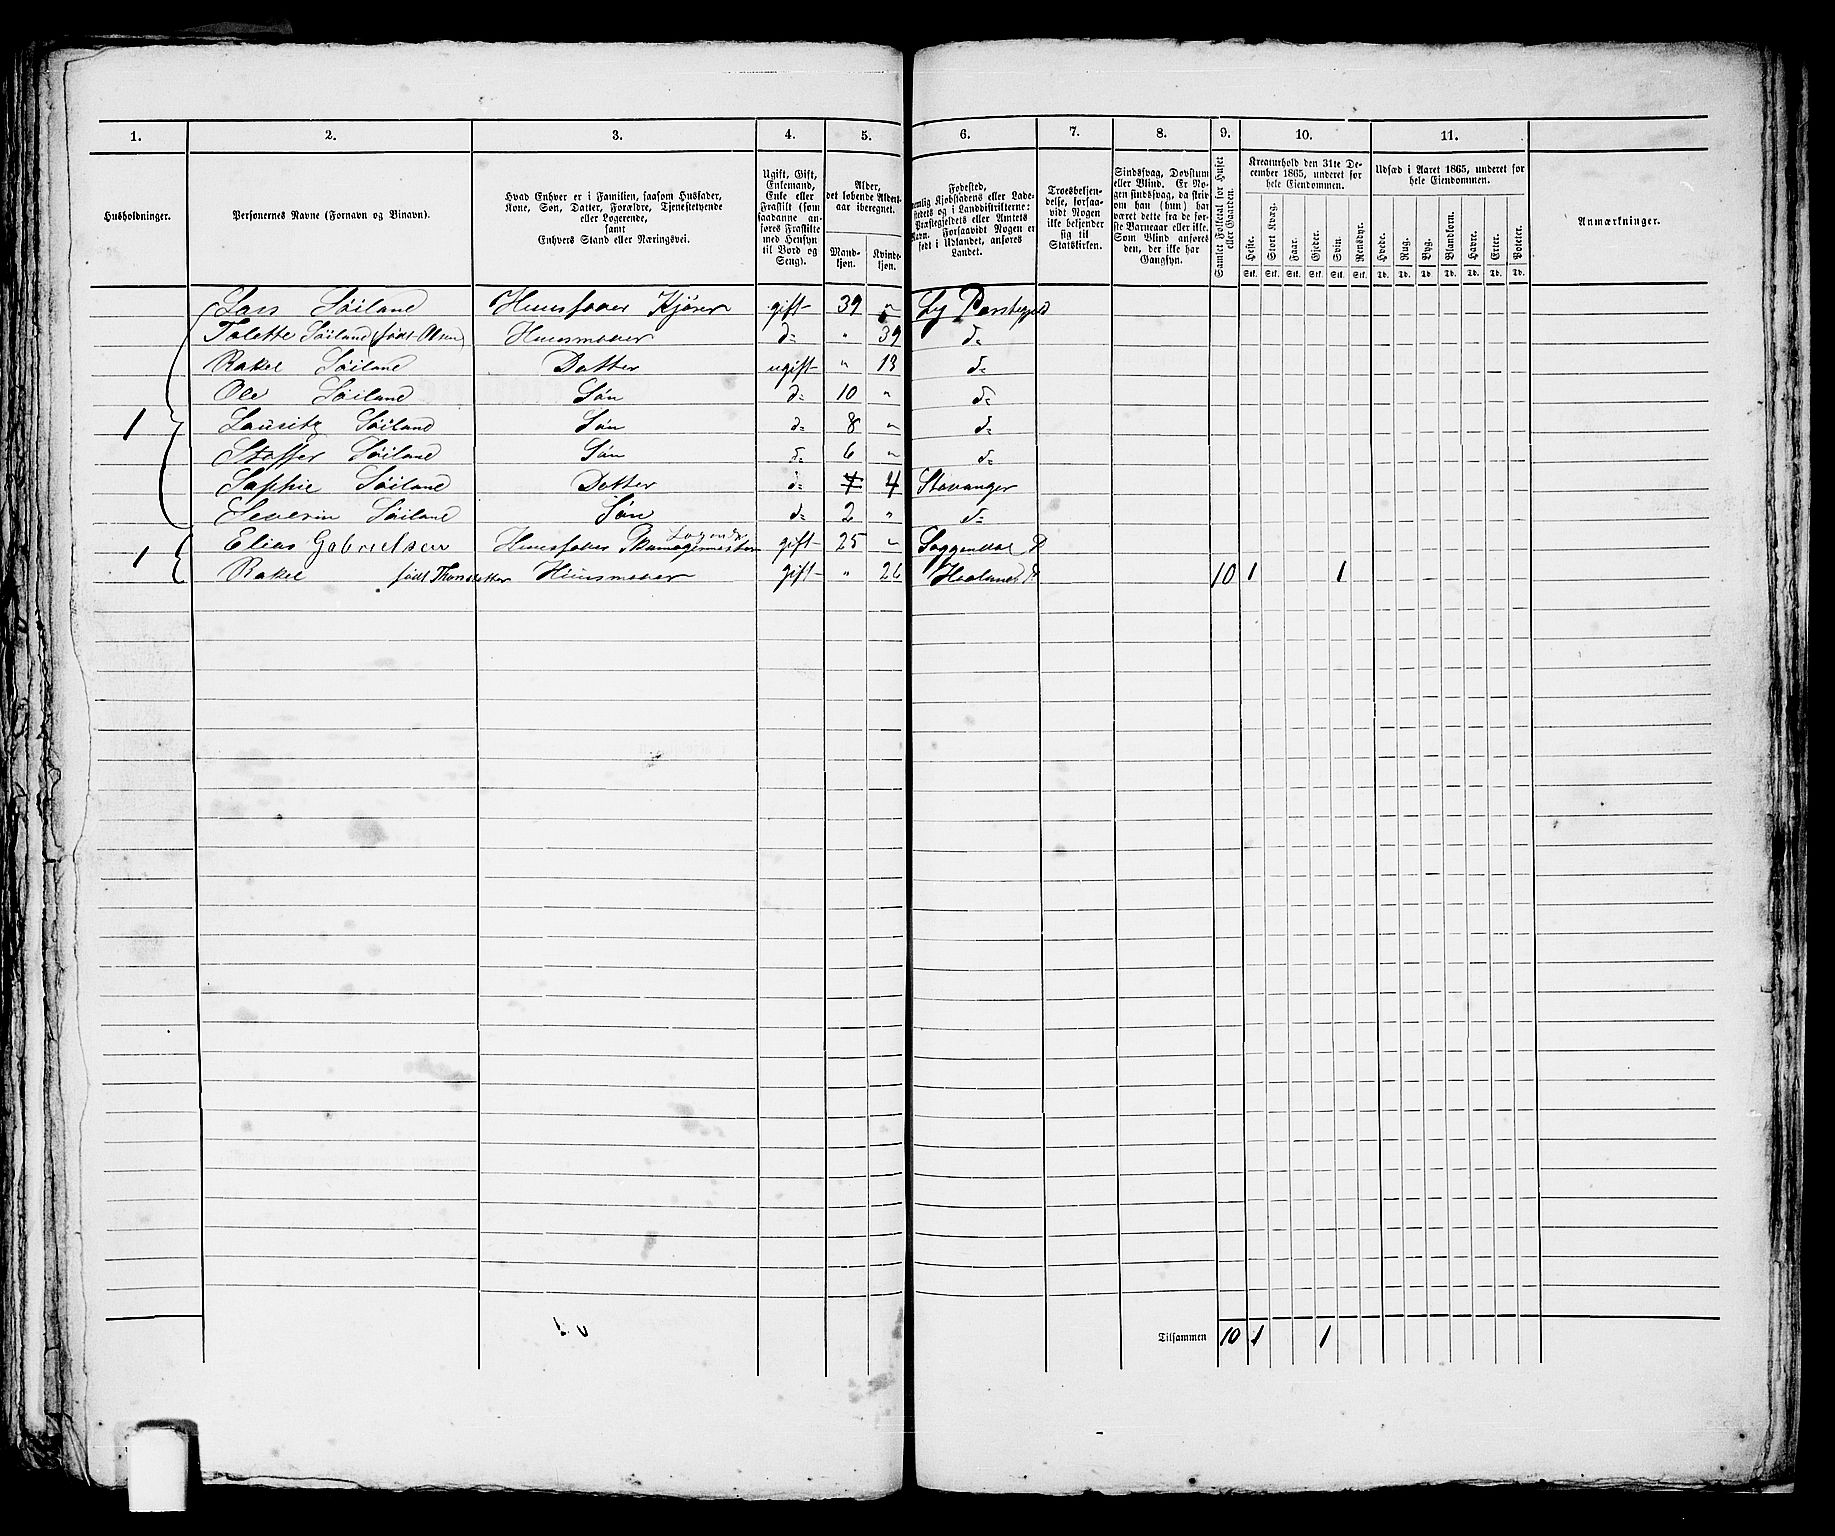 1. 2. 3. 4. 5. 6. 7. 8. 9. 10. 11.
Husholdninger.
Personernes Navne (Fornavn og Binavn).
Hvad Enhver er i Familien, saasom Husfader,
Kone, Søn, Datter, Forældre, Tjenestetyende
eller Logerende,
samt
Enhvers Stand eller Næringsvei.
Ugift, Gift,
Enkemand,
Enke eller
Fraskilt (som
saadanne an-
føres Fraskilte
med Hensyn
til Bord og
Seng).
Alder,
det løbende Alders-
aar iberegnet.
Mand-
kjøn.
Kvinde-
kjøn.
Fødested,
nemlig Kjøbstadens eller Lade-
stedets og i Landdistrikterne:
Præstegjeldets eller Amtets
Navn. Forsaavidt Nogen er
født i Udlandet, anføres
Landet.
Troesbekjen-
delse, forsaa-
vidt Nogen
ikke bekjender
sig til
Statskirken.
Sindssvag, Døvstum
eller Blind. Er No-
gen sindssvag, da skriv
om han (hun) har
været dette fra de før-
ste Barneaar eller ikke.
Som Blind anføres
den, der ikke har
Gangsyn.
Samlet Folketal for Huset
eller Gaarden.
Kreaturhold den 31te De-
cember 1865, underet for
hele Eiendommen.
Heste. Stort Kvæg. Faar. Gjeder. Svin. Rensdyr.
Stk. Stk. Stk. Stk. Stk. Stk.
Udsæd i Aaret 1865, underet for
hele Eiendommen.
Hvede. Rug. Byg. Blandkorn. Havre. Erter. Poteter.
Td. Td. Td. Td. Td. Td. Td.
Anmærkninger.
Lars Söiland Huusfader Kjörer gift 39 "
Tolette Söiland (født Olsen) Huusmoder d= " 39 d=
Rakel Söiland Datter ugift " 13 d=
Ole Söiland Sön d= 10 " d=
1 Lauritz Söiland Sön d= 8 " d=
Staffer Söiland Sön d= 6 " d=
Sophie Söiland Datter d= 4 Stavanger
Severin Söiland Sön d= 2 " d=
1 Elias Gabrielsen Huusfader gift 25 " Soggendal P
Rakel født Huusmoder gift " 26 Haaland P 10 1 1
Tilsammen 10 1 1